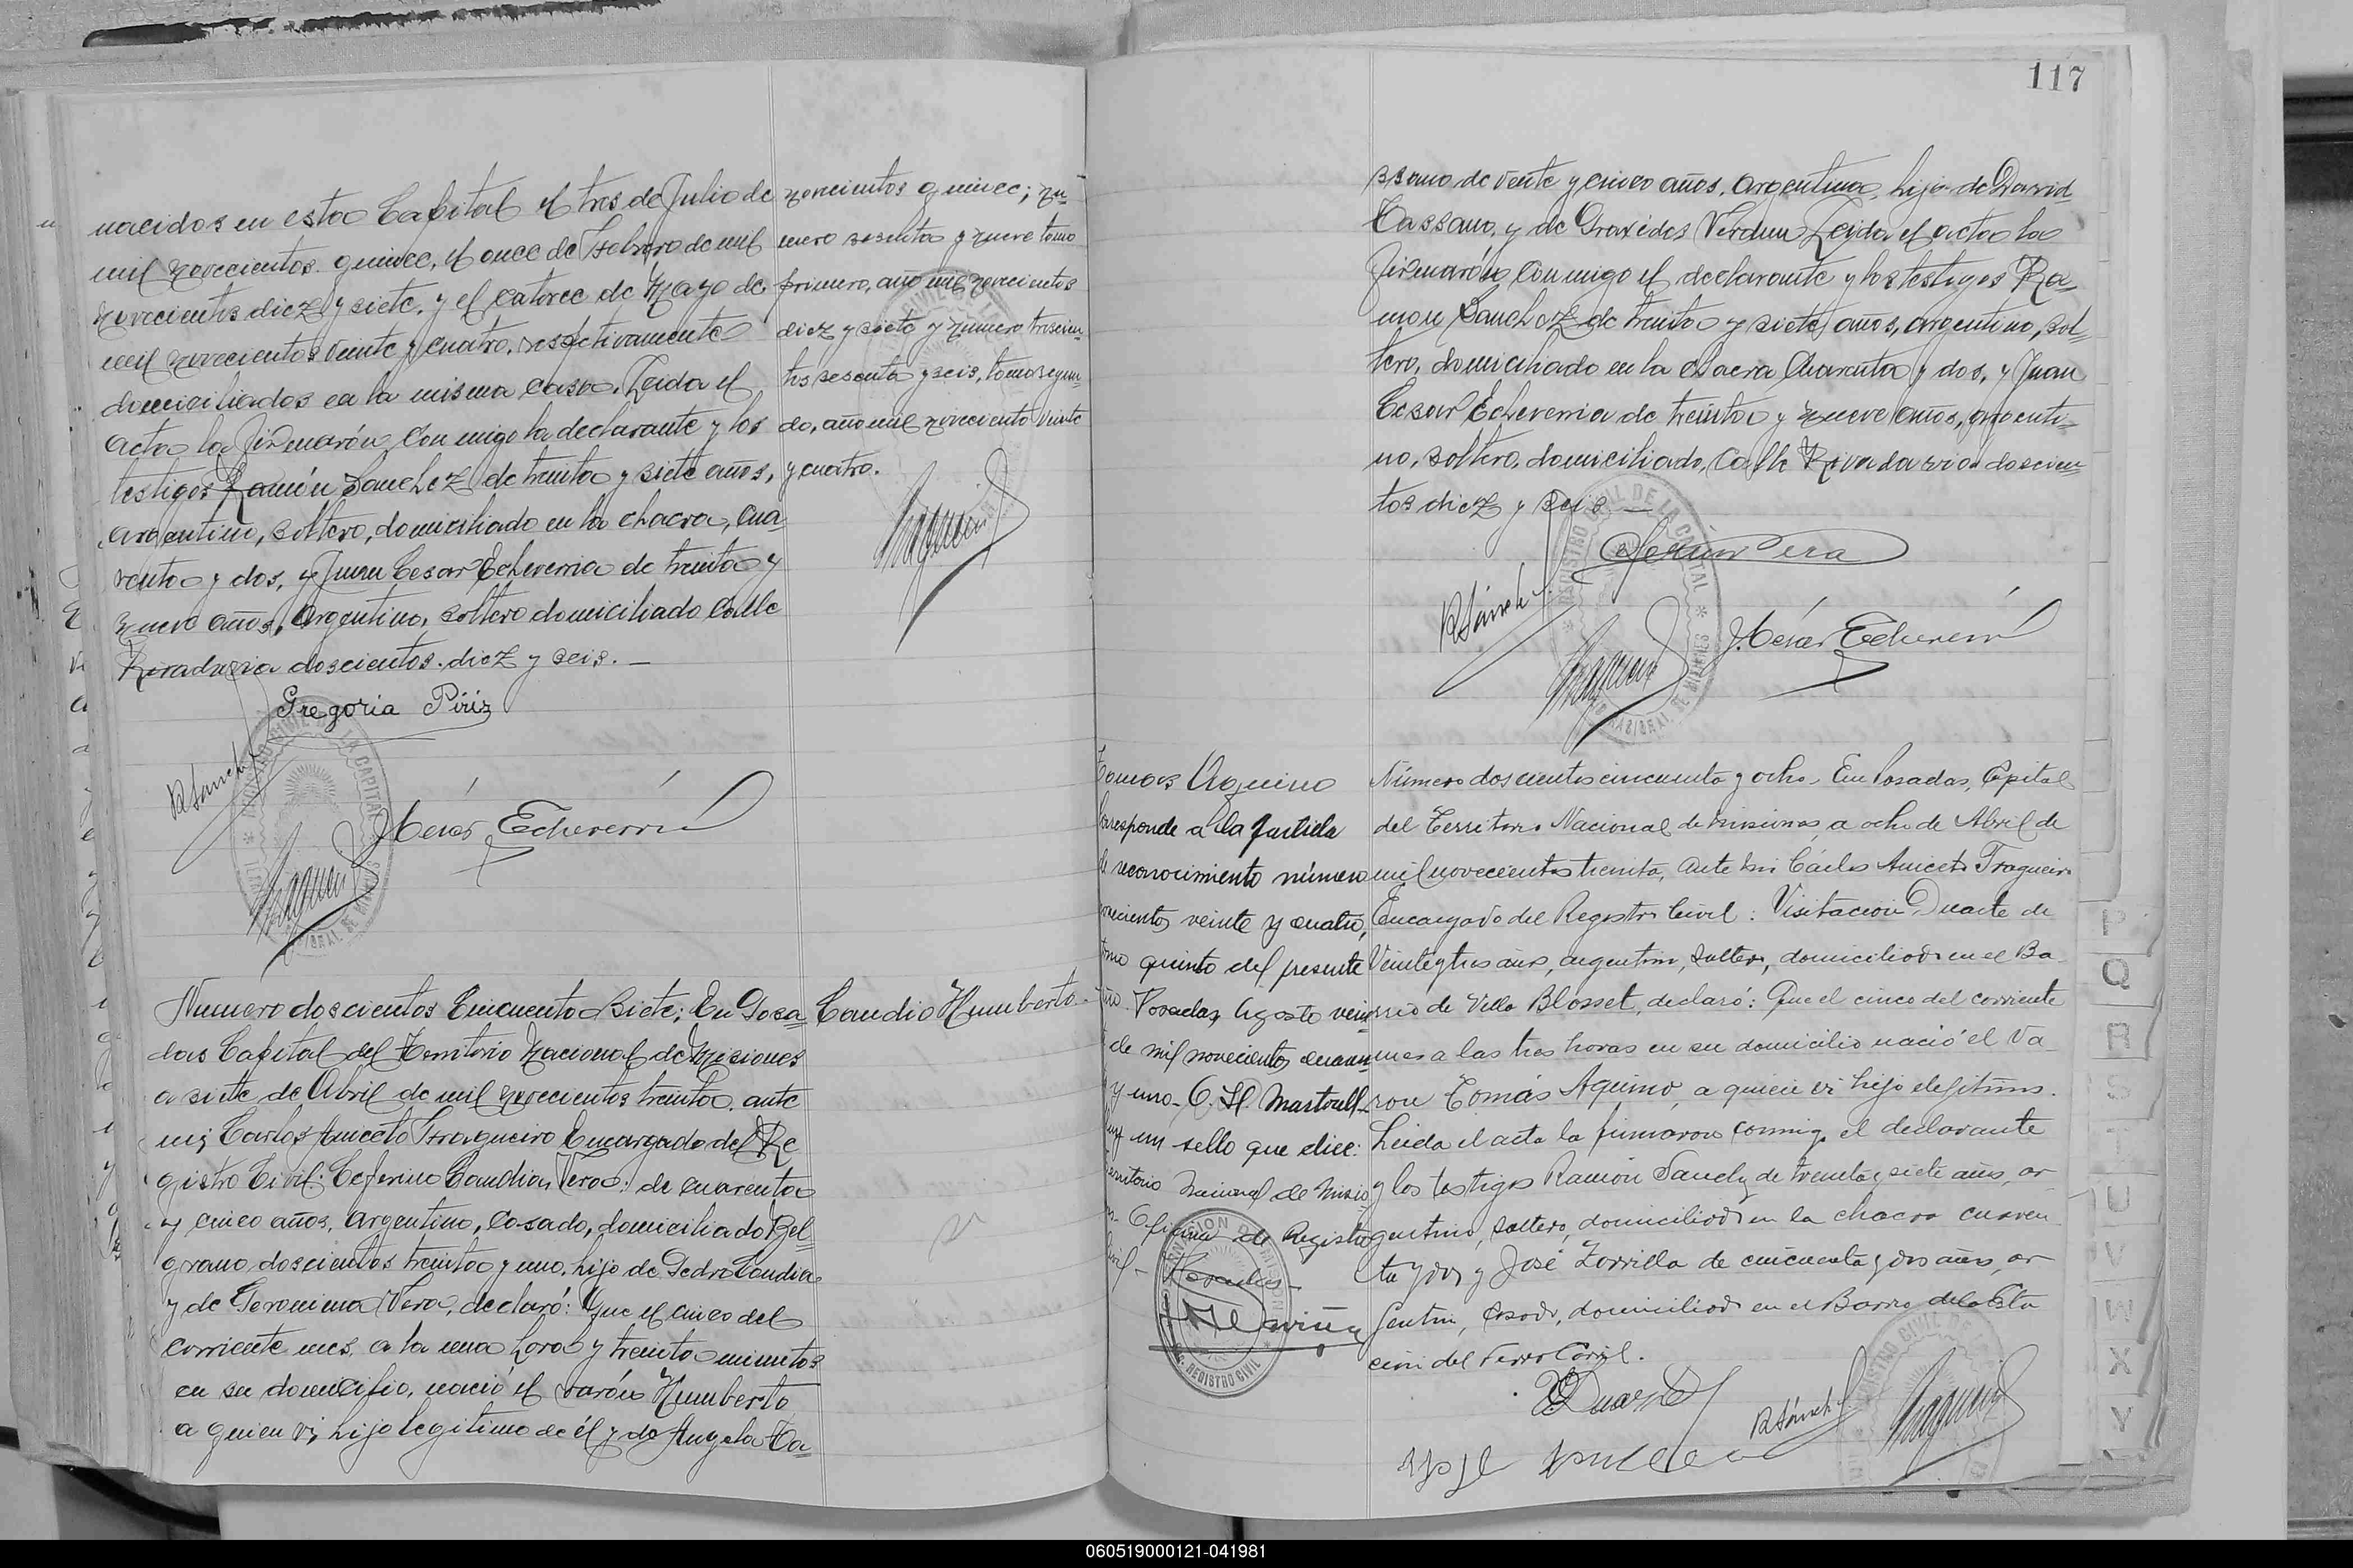 nacidos en esta Capital el tres de Julio de
mil novecientos quince, el once de Febrero de mil
novecientos diez y siete, y el catorce de Mayo de
mil novecientos veinte y cuatro, respectivamente
domiciliados en la misma casa. Leida el
acta la firmarón conmigo la declarante y los
testigos Ramón Sanchez de treinta y siete años,
argentino, soltero, domiciliado en la chacra, cua
renta y dos, y Juan Cesar Echeverria de treinta y
nueve años, Argentino, soltero domiciliado Calle
Rivadavia doscientos diez y seis. —
novecientos quince; nú-
mero sesenta y nueve tomo
primero, año mil novecientos
diez y siete y numero trescien-
tos sesenta y seis, tomo segun-
do, año mil novecientos veinte
y cuatro.
Gregoria Píriz
R Sánchez
J. César Echeverría
Numero doscientos Cincuenta Siete; En Posa-
das Capital del Territorio Nacional de Misiones
a siete de Abril de mil novecientos treinta, ante
mi; Carlos Aniceto Fragueiro Encargado del Re
gistro Civil: Ceferino Candia Vera: de cuarenta
y cinco años, Argentino, Casado, domiciliado Bel-
grano doscientos treinta y uno, hijo de Pedro Candia
y de Geronima Vera, declaró: Que el cinco del
corriente mes, a la una hora y treinta minutos
en su domicilio, nació el varón Humberto
a quien vi, hijo legitimo de él y de Angela Ca-
Candia Humberto
117
ssano de veinte y cinco años, argentina, hija de David
Cassano, y de Graxedes Verdun Leida el acta la
firmarón, conmigo el declarante y los testigos Ra-
mon Sanchez de treinta y siete años, argentino, sol-
tero, domiciliado en la chacra Cuarenta y dos, y Juan
Cesar Echeverria de treinta y nueve años, argenti-
no, soltero, domiciliado, Calle Rivadavia doscien-
tos diez y seis —
R Sánchez
J. César Echeverría
Tomas Aquino
Corresponde a la partida
de reconocimiento número
novecientos veinte y cuatro,
tomo quinto del presente
año. Posadas, Agosto vein
de mil novecientos cuaren
y uno.
hay un sello que dice:
Territorio Nacional de Misio
Oficina de Registro
Civil - Posadas -
Número doscientos cincuenta y ocho. En Posadas, Capital
del Territorio Nacional de Misiones a ocho de Abril de
mil novecientos treinta, ante mi Cárlos Aniceto Fragueiro
Encargado del Registro Civil: Visitación Duarte de
Veinte y tres años, argentino, soltero, domiciliado en el Ba-
rrio de Villa Blosset, declaró: Que el cinco del corriente
mes a las tres horas en su domicilio nació el va-
ron Tomás Aquino, a quien vi hijo ilegítimo.
Leida el acta la firmaron conmigo el declarante
y los testigos Ramón Sanchez de treinta y siete años, ar
gentino, soltero, domiciliado en la chacra cuaren
ta y dos y José Zorrilla de cincuenta y dos años, ar
gentino, casado, domiciliado en el Barrio de la Esta
ción del Ferro Carril.
V Duarte
R Sánchez
060519000121-041981
P
Q
R
S
T
U
V
W
X
Y